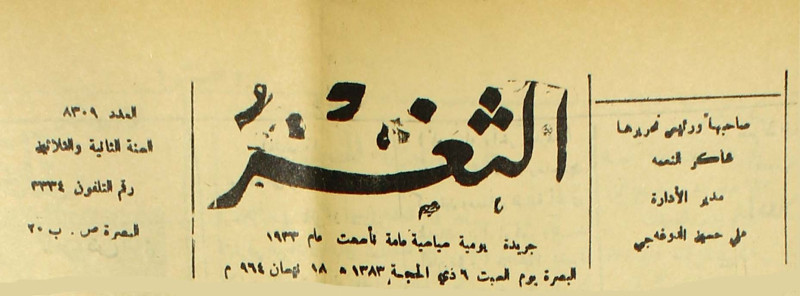 صاحبها ورئيس تحريرها
شاكر النعمه
مدير الأدارة
علي حسين
الثغر
جريدة يومية سياسية عامة تأسست عام ١٩٣٣
البصرة يوم السبت ٦ ذي الحجة ١٣٨٣ ه ١٨ نيسان ٩٦٤ م
العدد ٨٣٠٩
السنة الثانية والثلاثين
رقم التلفون ٣٣٣٤
البصرة ص . ب ٢٠